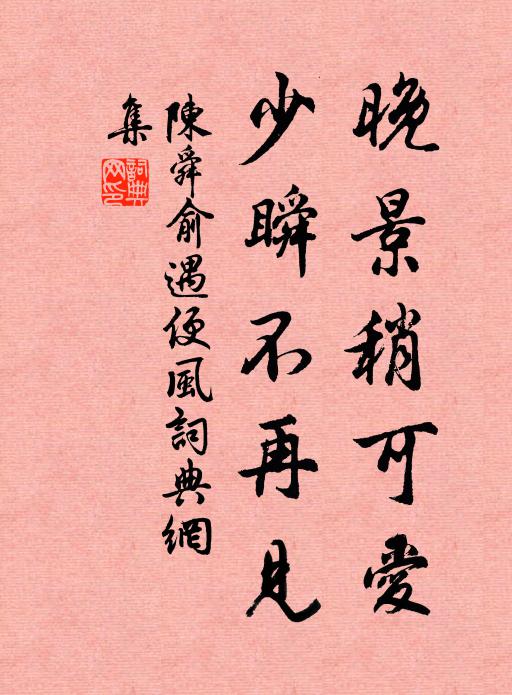 晚景稍可愛
少瞬不再見
陳舜俞遇便風詞典網
集
詞典
网印